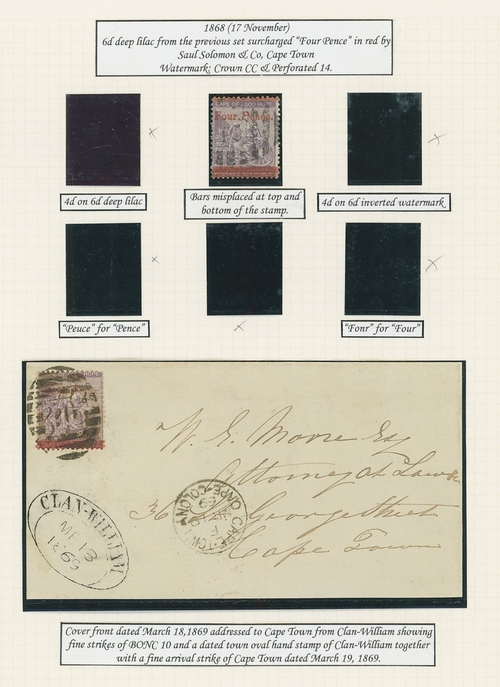 1868 (17 November)
6d deep lilac from the previous set surcharged "Four Pence" in red by
Saul Solomon & Co, Cape Town
Watermark: Crown CC & Perforated 14.
CAPE OF GOOD HOPE
Four Pence.
4d on 6d deep lilac
Bars misplaced at top and
bottom of the stamp.
4d on 6d inverted watermark
"Peuce" for "Pence"
"Fonr" for "Four"
W. E. Moore Esq
Attorney at Law &c
36 George Street
Cape Town
CAPE-TOWN CAPE-COLONY
CLAN-WILLIAM
MR 18
1869
Cover front dated March 18,1869 addressed to Cape Town from Clan-William showing
fine strikes of BONC 10 and a dated town oval hand stamp of Clan-William together
with a fine arrival strike of Cape Town dated March 19, 1869.